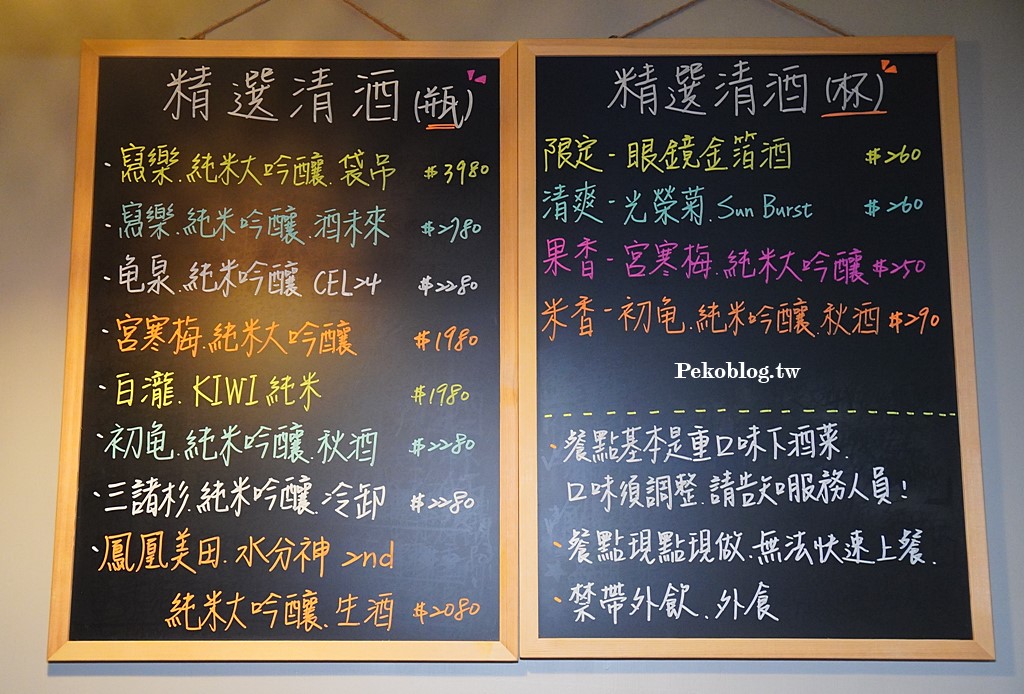 精選清酒(瓶)
·寫樂.純米大吟釀.袋吊 $3980
·寫樂.純米吟釀.酒未來 $2780
·亀泉.純米吟釀 CEL24 $2280
·宮寒梅.純米大吟釀 $1980
·白瀧.KIWI 純米 $1980
·初亀.純米吟釀.秋酒 $2280
·三諸杉.純米吟釀.冷卸 $2280
·鳳凰美田.水分神 2nd
純米大吟釀.生酒 $2080
精選清酒(杯)
限定-眼鏡金箔酒 $260
清爽-光榮菊.Sun Burst $260
果香-宮寒梅.純米大吟釀 $250
米香-初亀.純米吟釀.秋酒 $290
Pekoblog.tw
·餐點基本是重口味下酒菜.
口味須調整.請告知服務人員!
·餐點現點現做.無法快速上餐.
·禁帶外飲.外食